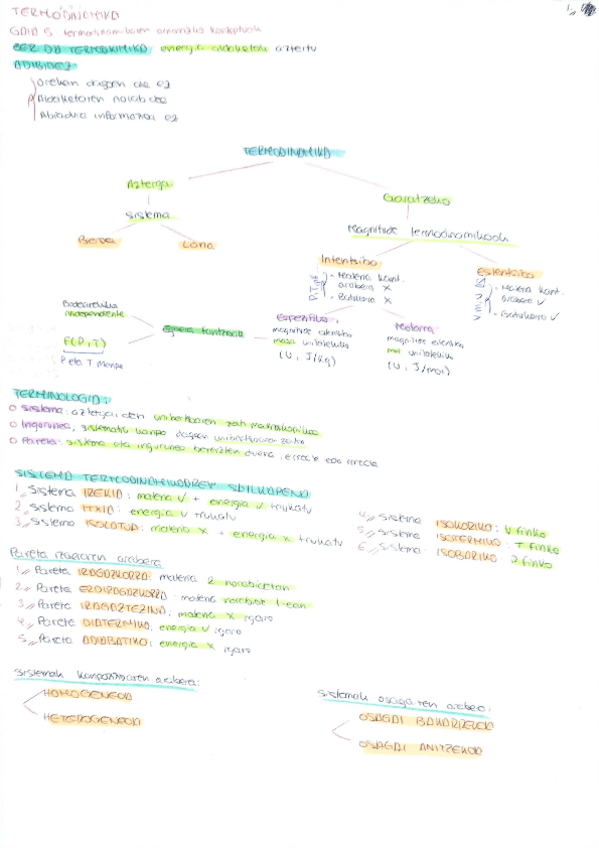 TERMODINAMIKA
GAIA 5 termodinamikaren oinarrizko kontzeptuak
ZER DA TERMODINAMIKA: energia aldaketak aztertu
ADIBIDEZ
orekan dagoen ala ez
Aldaketaren norabidea
Abiadura informazioa ez
TERMODINAMIKA
Aztergai
Garatzeko
sistema
Magnitude termodinamikoak
Beroa
Lana
Intentsiboa
Estentsiboa
P, T
- Materia kant. arabera X
- Batukorra X
- Materia kant. arabera ✓
- Batukorra ✓
independente
Egoera funtzioa
Espezifikoa:
magnitude
masa unitateko
(U, J/kg)
Molarra
magnitude estentsiboa
mol unitateko
(U, J/mol)
F(P, T)
P eta T menpe
TERMINOLOGIA:
Sistema: aztergai den unibertsoaren zati makroskopikoa
Ingurunea, sistematik kanpo dagoen unibertsoaren zatia
Pareta: sistema eta ingurunea bereizten duena, erreala edo irreala
SISTEMA TERMODINAMIKOAREN SAILKAPENA
1, Sistema IREKIA: materia ✓ + energia ✓ trukatu
2, Sistema ITXIA: energia ✓ trukatu
3, Sistema ISOLATUA: materia X + energia X trukatu
4, Sistema ISOKORIKO: V finko
5, Sistema ISOTERMIKO: T finko
6, Sistema ISOBARIKO: P finko
Pareta motaren arabera
1, Pareta IRAGAZKORRA: materia 2 norabidetan
2, Pareta ERDIRAGAZKORRA: materia norabide 1-ean
3, Pareta IRAGAZTEZINA: materia X igaro
4, Pareta DIATERMIKO: energia ✓ igaro
5, Pareta ADIABATIKO: energia X igaro
Sistemak konposizioaren arabera:
HOMOGENEOA
HETEROGENEOA
Sistemak osagaien arabera:
OSAGAI BAKARREKOA
OSAGAI ANITZEKOA